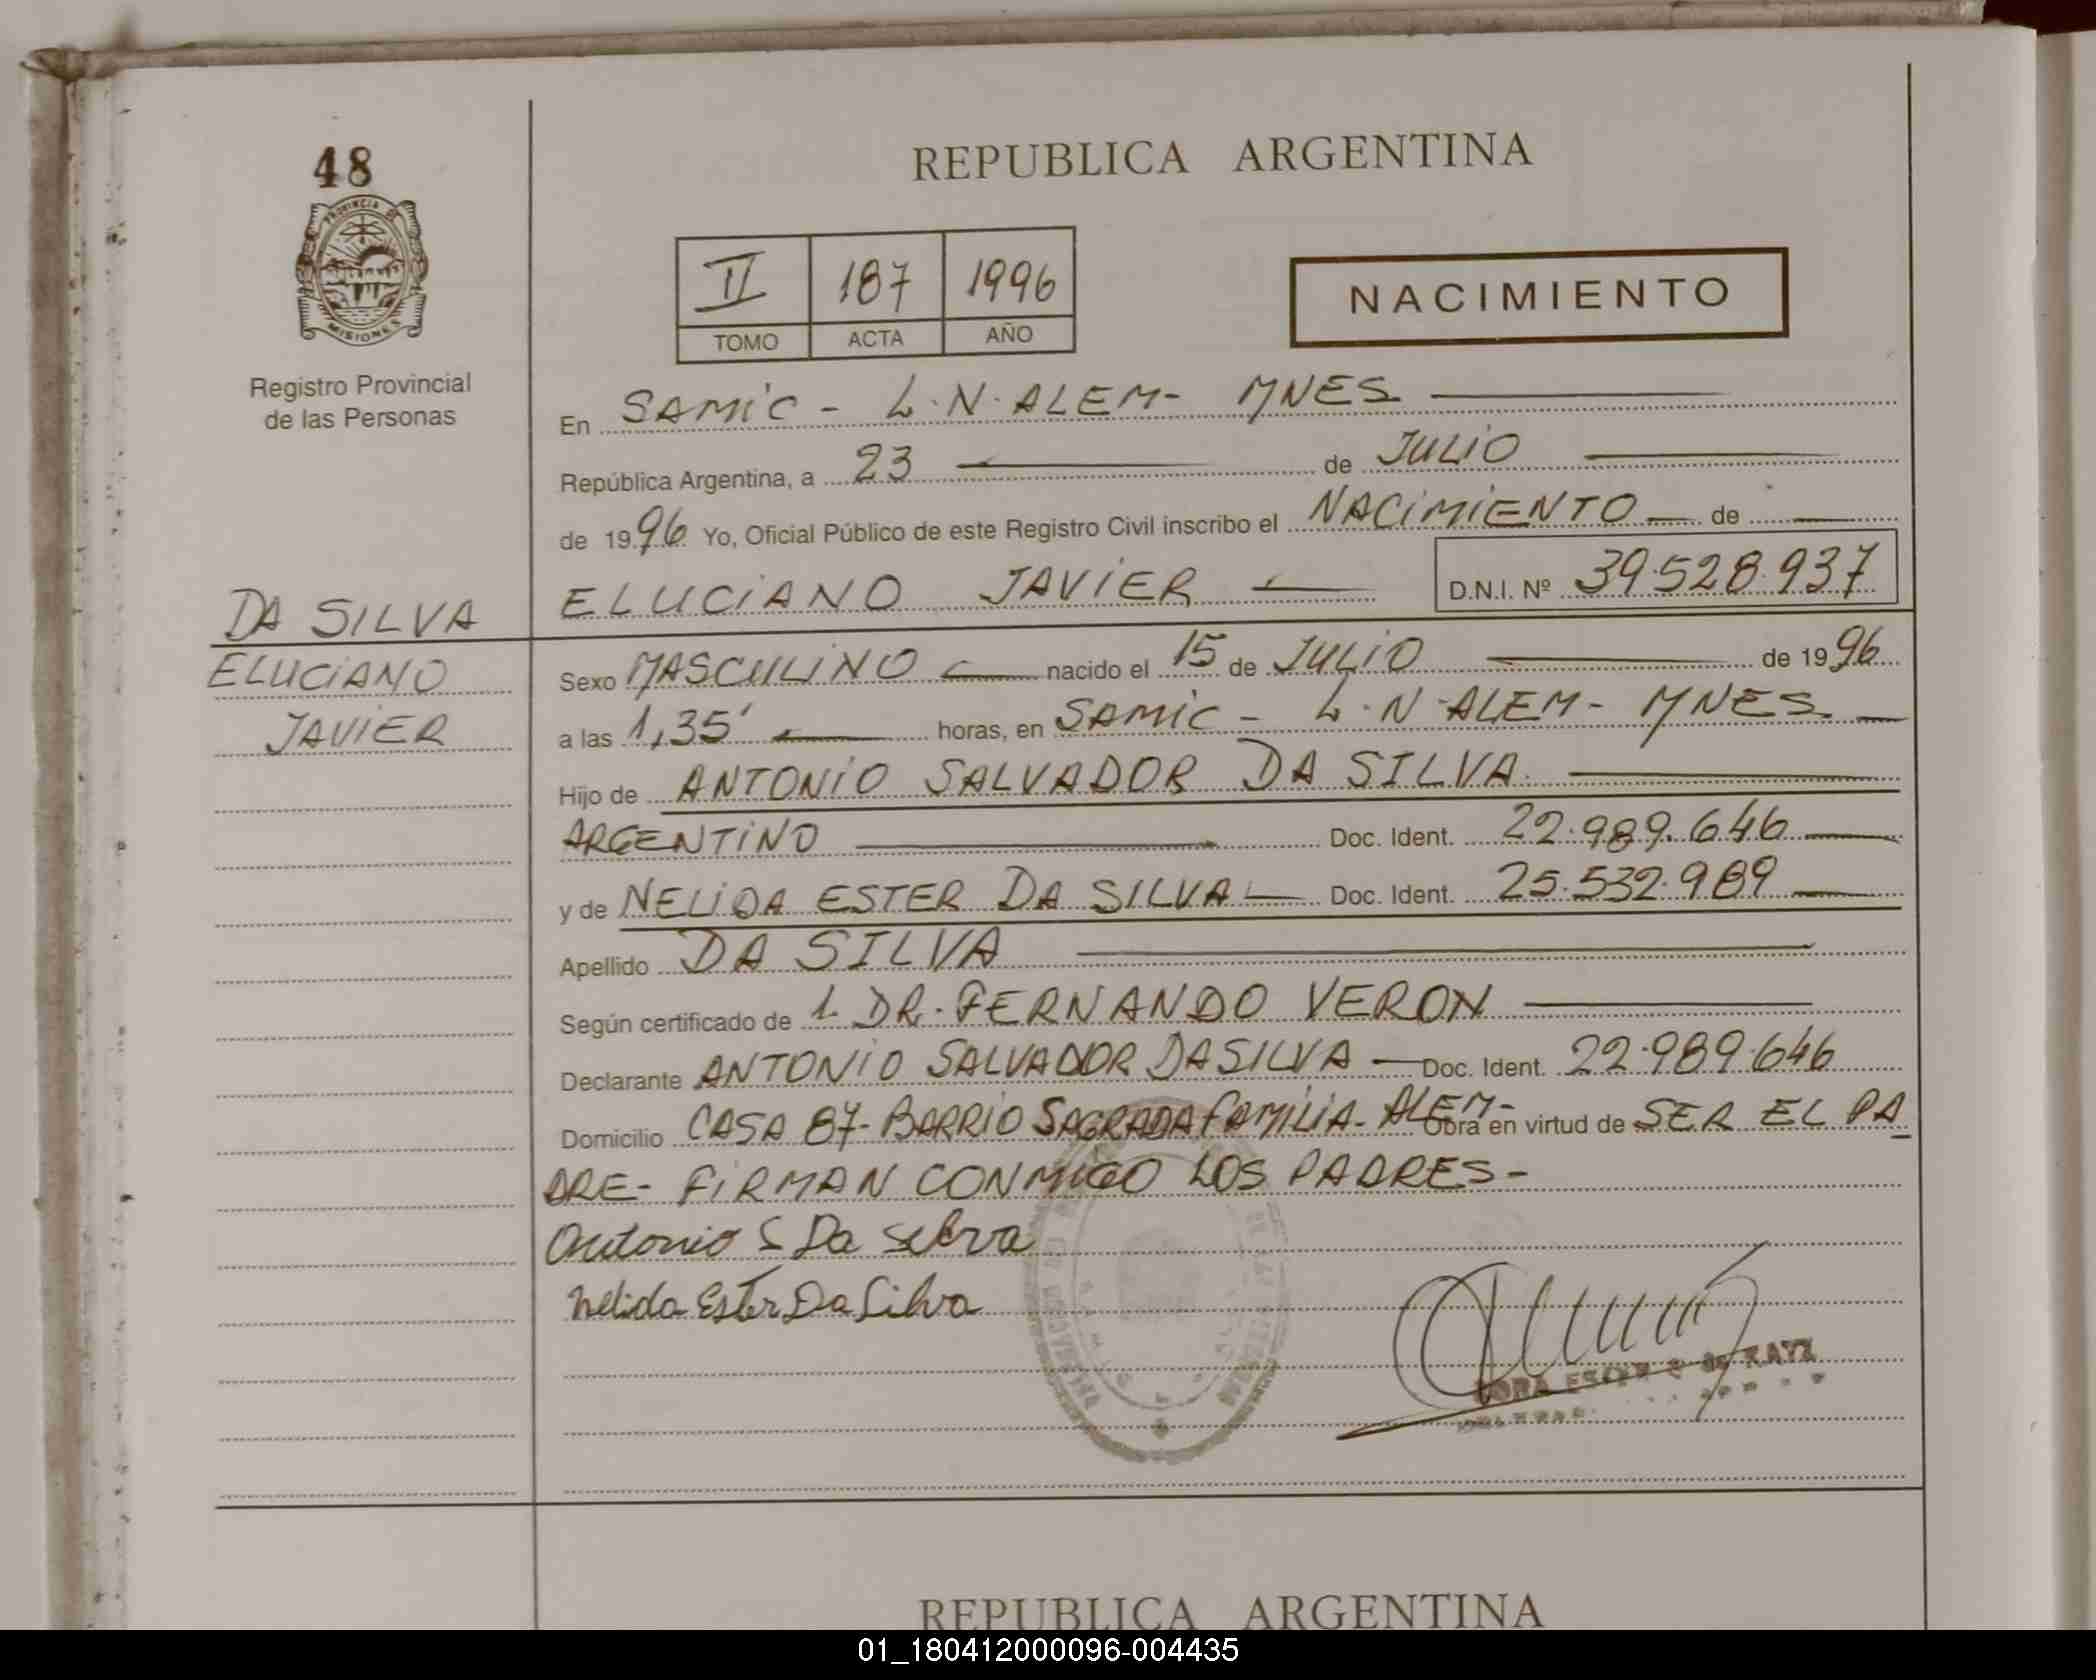 48
PROVINCIA DE
MISIONES
Registro Provincial
de las Personas
REPUBLICA ARGENTINA
II 187 1996
TOMO ACTA AÑO
NACIMIENTO
En SAMIC - L.N. ALEM - MNES
República Argentina, a 23 de JULIO
de 1996 Yo, Oficial Público de este Registro Civil inscribo el NACIMIENTO de
ELUCIANO JAVIER D.N.I. Nº 39.528.937
DA SILVA
ELUCIANO
JAVIER
Sexo MASCULINO nacido el 15 de JULIO de 1996
a las 1,35' horas, en SAMIC - L.N ALEM - MNES
Hijo de ANTONIO SALVADOR DA SILVA
ARGENTINO Doc. Ident. 22.989.646
y de NELIDA ESTER DA SILVA Doc. Ident. 25.532.989
Apellido DA SILVA
Según certificado de 1. DR. FERNANDO VERON
Declarante ANTONIO SALVADOR DA SILVA - Doc. Ident. 22.989.646
Domicilio CASA 87- BARRIO SAGRADA FAMILIA- ALEM- Obra en virtud de SER EL PA
DRE- FIRMAN CONMIGO LOS PADRES-
Antonio S Da Silva
Nelida Ester Da Silva
REPUBLICA ARGENTINA
01_180412000096-004435